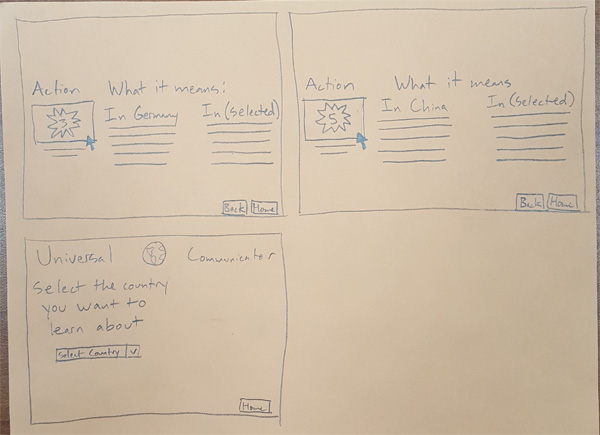 Action What it means:
3
In Germany In (selected)
Back Home
Action What it means
5
In China In (selected)
Back Home
Universal Communicator
Select the country
you want to
learn about
Select Country V
Home